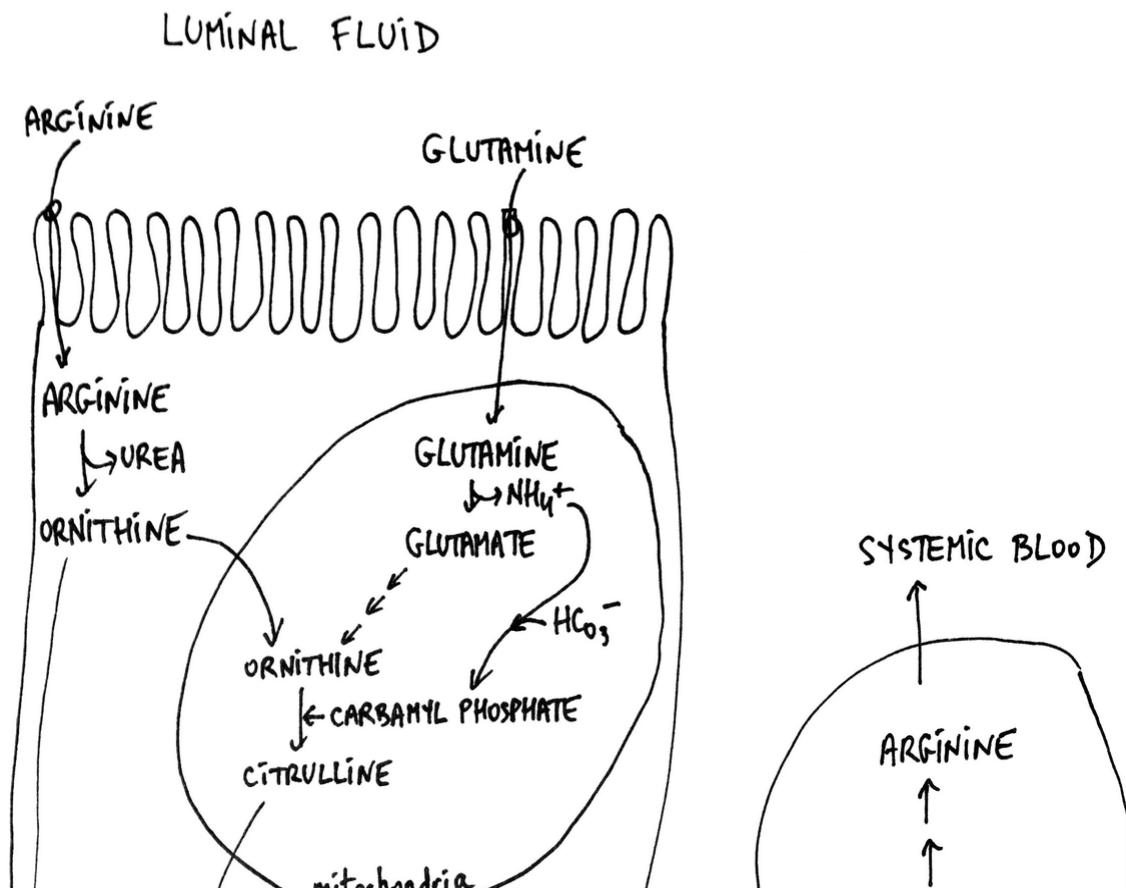 LUMINAL FLUID
ARGININE
GLUTAMINE
ARGININE
UREA
ORNITHINE
GLUTAMINE
NH4+
GLUTAMATE
HCO3-
ORNITHINE
CARBAMYL PHOSPHATE
CITRULLINE
mitochondria
SYSTEMIC BLOOD
ARGININE